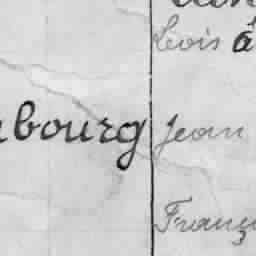 Lois à
bourg Jean
Franç